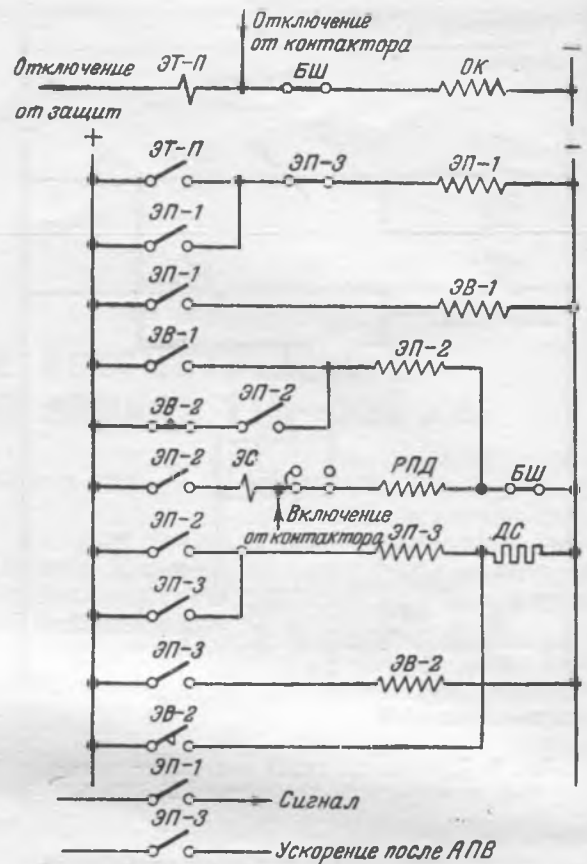 Отключение
от контактора
Отключение
ЭТ-П
БШ
ОК
−
от защит
+
−
ЭТ-П
ЭП-3
ЭП-1
ЭП-1
ЭП-1
ЭВ-1
ЭВ-1
ЭП-2
ЭВ-2
ЭП-2
ЭП-2
ЭС
РПД
БШ
Включение
от контактора
ЭП-2
ЭП-3
ДС
ЭП-3
ЭП-3
ЭВ-2
ЭВ-2
ЭП-1
Сигнал
ЭП-3
Ускорение после АПВ